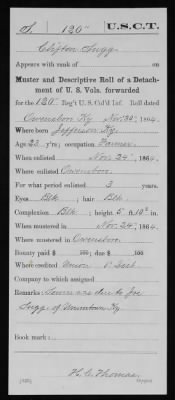 S. 120" U.S.C.T.
Clifton Sugg
Appears with rank of
Muster and Descriptive Roll of a Detach-
ment of U. S. Vols. forwarded
for the 120" Reg't U. S. Col'd Inf. Roll dated
Owensboro Ky Nov. 30", 1864.
Where born Jefferson Ky.
Age 23 y'rs; occupation Farmer
When enlisted Nov. 24", 1864.
Where enlisted Owensboro
For what period enlisted 3 years.
Eyes Blk; hair Blk.
Complexion Blk; height 5 ft. in.
When mustered in Nov. 24", 1864.
Where mustered in Owensboro
Bounty paid $ 100; due $ 100
Where credited Union
Company to which assigned
Remarks: due to Joe
Sugg of Ky.
Book mark:
H. C. Thomas.